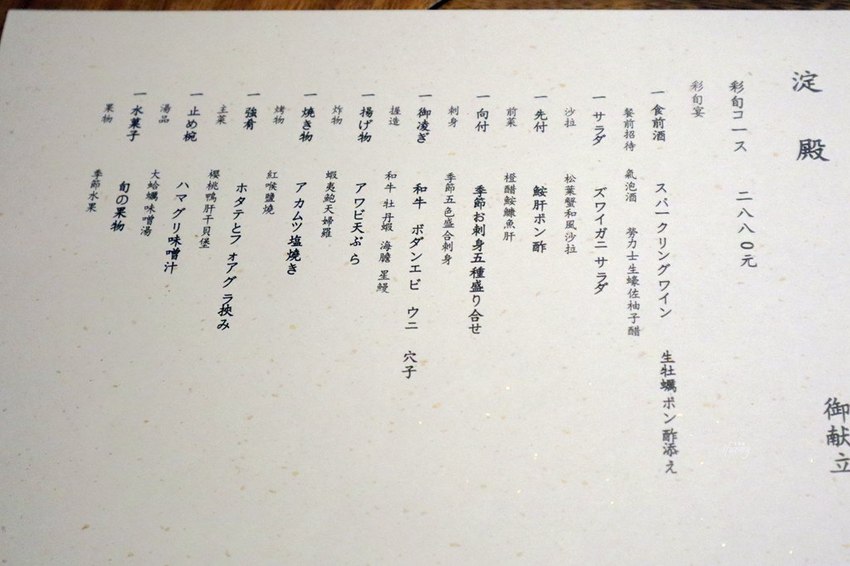 御献立
淀殿
彩旬コース 二八八〇元
彩旬宴
一 食前酒 スパークリングワイン 生牡蠣ポン酢添え
餐前招待 氣泡酒 勞力士生蠔佐柚子醋
一 サラダ ズワイガニサラダ
沙拉 松葉蟹和風沙拉
一 先付 鮟肝ポン酢
前菜 橙醋鮟鱇魚肝
一 向付 季節お刺身五種盛り合せ
刺身 季節五色盛合刺身
一 御凌ぎ 和牛 ボダンエビ ウニ 穴子
握造 和牛 牡丹蝦 海膽 星鰻
一 揚げ物 アワビ天ぷら
炸物 蝦夷鮑天婦羅
一 焼き物 アカムツ塩焼き
烤物 紅喉鹽燒
一 強肴 ホタテとフォアグラ挟み
主菜 櫻桃鴨肝干貝堡
一 止め椀 ハマグリ味噌汁
湯品 大蛤蠣味噌湯
一 水菓子 旬の果物
果物 季節水果